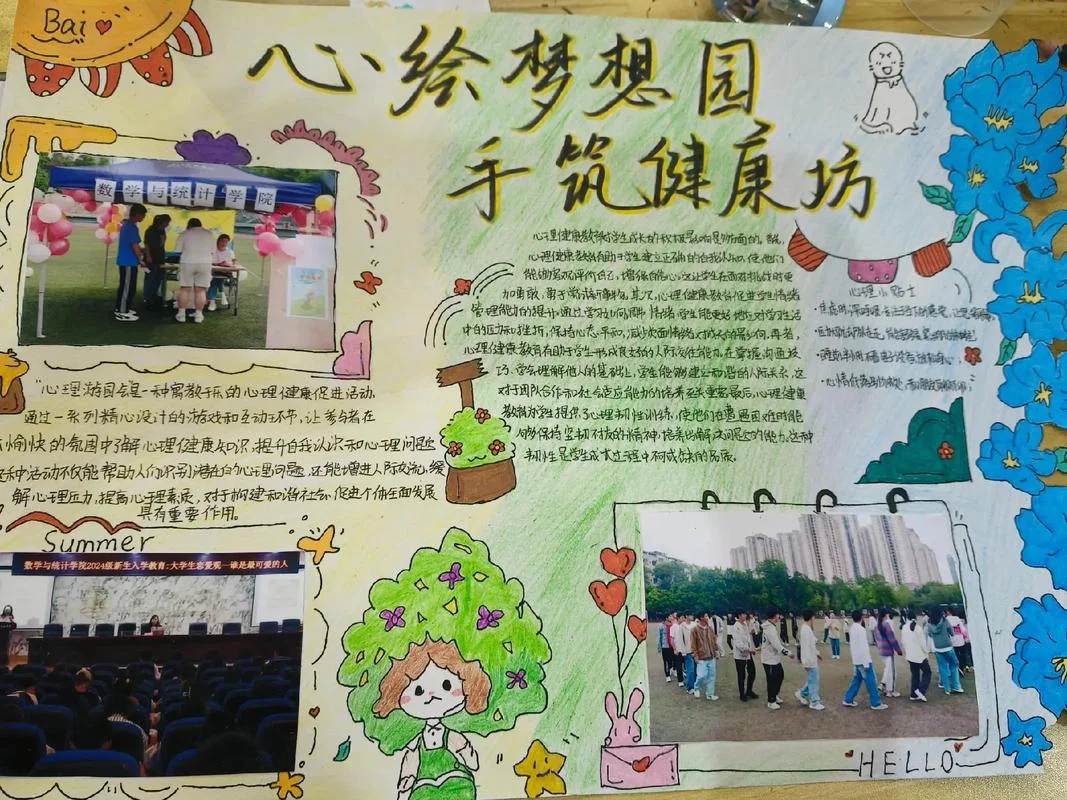 Bai
心绘梦想园
手筑健康坊
数学与统计学院
心理健康教育对学生成长的积极影响是多方面的。首先,
心理健康教育有助于学生建立正确的自我认知,使他们
能够客观评价自己,增强自信心,这让学生在面对挑战时更
加勇敢,勇于尝试新事物。其次,心理健康教育促进学生情绪
管理能力的提升,通过学习如何调节情绪,学生能更好地应对学习生活
中的压力和挫折,保持心态平和,减少负面情绪对成长的影响。再者,
心理健康教育有助于学生形成良好的人际交往能力。在掌握沟通技
巧、学会理解他人的基础上,学生能够建立和谐的人际关系,这
对于团队合作和社会适应能力的培养至关重要。最后,心理健康
教育为学生提供了心理韧性训练,使他们在遭遇困难时能
够保持坚韧不拔的精神,培养出解决问题的能力。这种
韧性是学生成长过程中不可或缺的品质。
心理小贴士
"心理游园会是一种寓教于乐的心理健康促进活动,
通过一系列精心设计的游戏和互动环节,让参与者在
愉快的氛围中了解心理健康知识,提升自我认识和心理问题应
这种活动不仅能帮助人们识别潜在的心理问题,还能增进人际交流,缓
解心理压力,提高心理素质,对于构建和谐社会、促进个体全面发展
具有重要作用。
Summer
数学与统计学院2024级新生入学教育:大学生恋爱观—谁是最可爱的人
HELLO